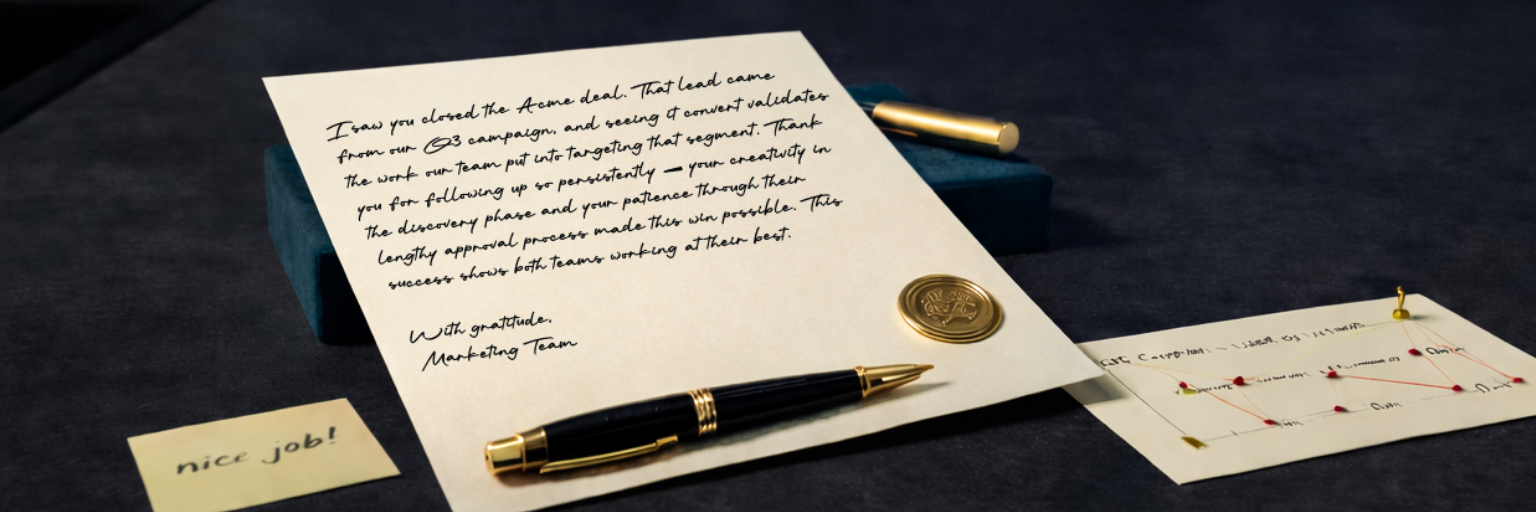 I saw you closed the Acme deal. That lead came
from our Q3 campaign, and seeing it convert validates
the work our team put into targeting that segment. Thank
you for following up so persistently — your creativity in
the discovery phase and your patience through their
lengthy approval process made this win possible. This
success shows both teams working at their best.
With gratitude,
Marketing Team
nice job!